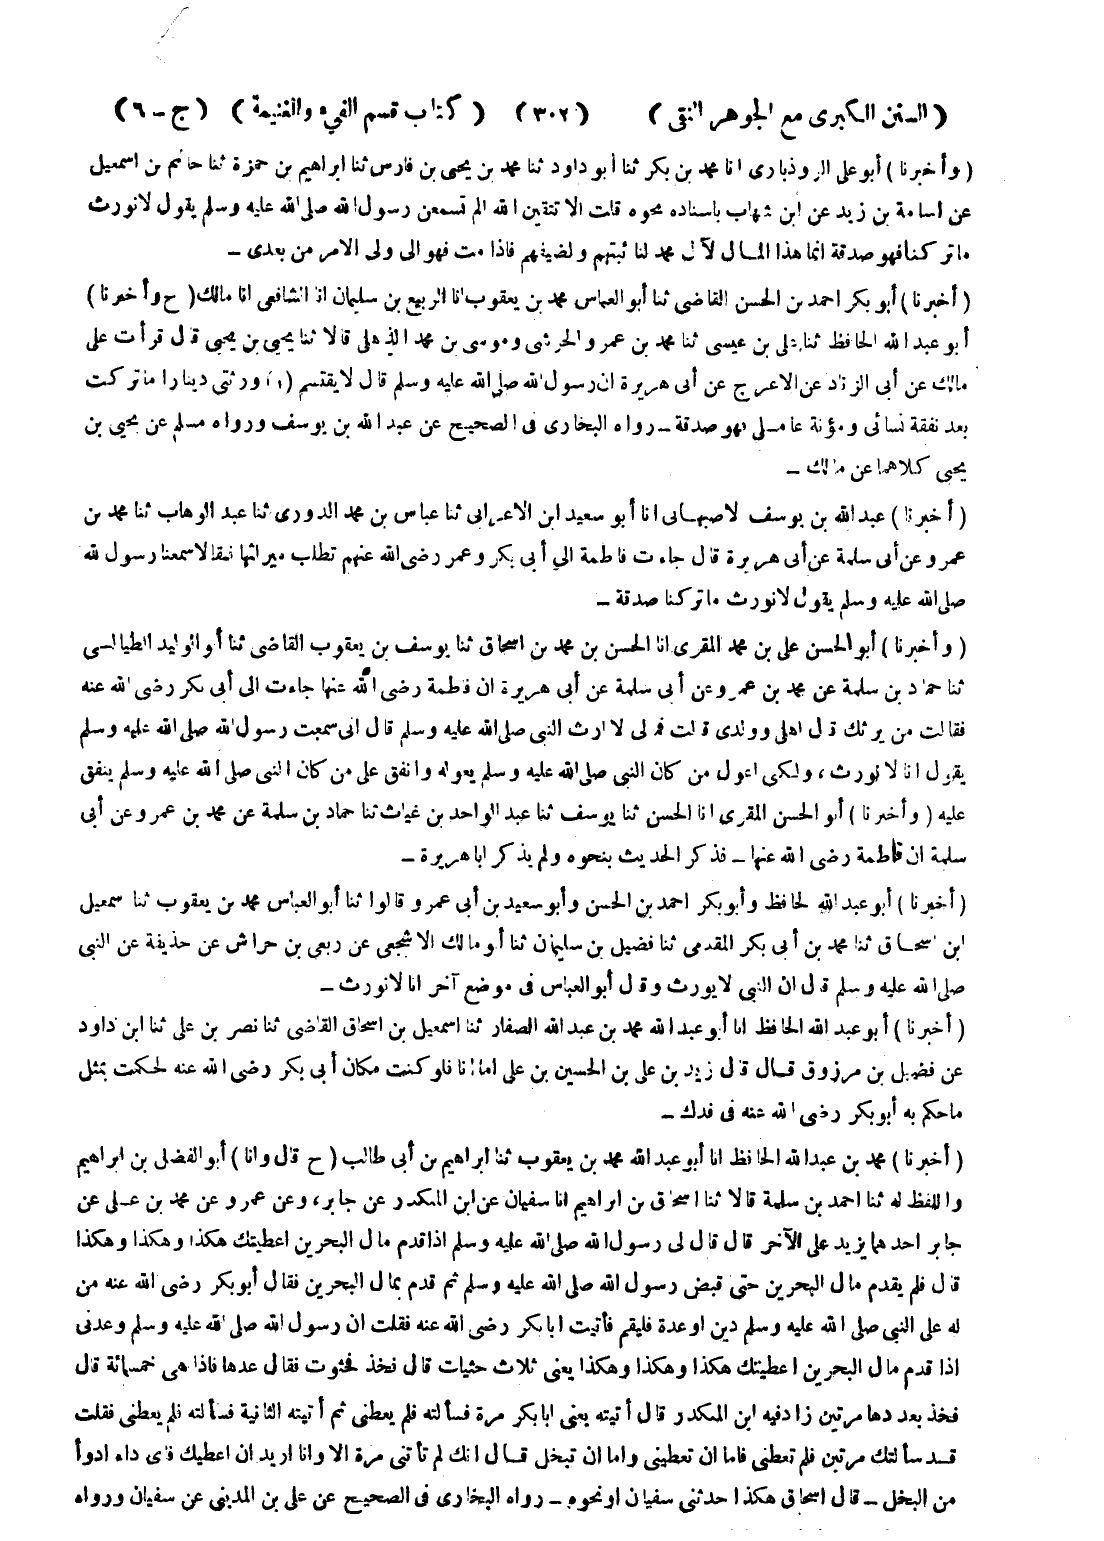 ( السنن الكبرى مع الجوهر النقى ) ( ٣٠٢ ) ( كتاب قسم الفىء والغنيمة ) ( ج – ٦ )
( وأخبرنا ) أبو على الروذبارى انا محمد بن بكر ثنا أبو داود ثنا محمد بن يحيى بن فارس ثنا ابراهيم بن حمزة ثنا حاتم بن اسمعيل
عن اسامة بن زيد عن ابن شهاب باسناده نحوه قلت الا تتقين الله الم تسمعن رسول الله صلى الله عليه وسلم يقول لا نورث
ما تركنا فهو صدقة انما هذا المال لآل محمد لنائبتهم ولضيفهم فاذا مت فهو الى ولى الامر من بعدى –
( أخبرنا ) أبو بكر احمد بن الحسن القاضى ثنا أبو العباس محمد بن يعقوب انا الربيع بن سليمان انا الشافعى انا مالك ( ح وأخبرنا )
أبو عبد الله الحافظ ثنا على بن عيسى ثنا محمد بن عمرو الحرشى وموسى بن محمد الذهلى قالا ثنا يحيى بن يحيى قال قرأت على
مالك عن أبى الزناد عن الاعرج عن أبى هريرة ان رسول الله صلى الله عليه وسلم قال لا يقتسم (١) ورثتى دينارا ما تركت
بعد نفقة نسائى ومؤنة عاملى فهو صدقة – رواه البخارى فى الصحيح عن عبد الله بن يوسف ورواه مسلم عن يحيى بن
يحيى كلاهما عن مالك –
( أخبرنا ) عبد الله بن يوسف الاصبهانى انا أبو سعيد ابن الاعرابى ثنا عباس بن محمد الدورى ثنا عبد الوهاب ثنا محمد بن
عمرو عن أبى سلمة عن أبى هريرة قال جاءت فاطمة الى أبى بكر وعمر رضى الله عنهم تطلب ميراثها فقالا سمعنا رسول الله
صلى الله عليه وسلم يقول لا نورث ما تركنا صدقة –
( وأخبرنا ) أبو الحسن على بن محمد المقرى انا الحسن بن محمد بن اسحاق ثنا يوسف بن يعقوب القاضى ثنا أبو الوليد الطيالسى
ثنا حماد بن سلمة عن محمد بن عمرو عن أبى سلمة عن أبى هريرة ان فاطمة رضى الله عنها جاءت الى أبى بكر رضى الله عنه
فقالت من يرثك قال اهلى وولدى قالت فمالى لا ارث النبى صلى الله عليه وسلم قال انى سمعت رسول الله صلى الله عليه وسلم
يقول انا لا نورث ، ولكنى اعول من كان النبى صلى الله عليه وسلم يعوله وانفق على من كان النبى صلى الله عليه وسلم ينفق
عليه ( وأخبرنا ) أبو الحسن المقرى انا الحسن ثنا يوسف ثنا عبد الواحد بن غياث ثنا حماد بن سلمة عن محمد بن عمرو عن أبى
سلمة ان فاطمة رضى الله عنها – فذكر الحديث بنحوه ولم يذكر ابا هريرة –
( أخبرنا ) أبو عبد الله الحافظ وأبو بكر احمد بن الحسن وأبو سعيد بن أبى عمرو قالوا ثنا أبو العباس محمد بن يعقوب ثنا اسمعيل
ابن اسحاق ثنا محمد بن أبى بكر المقدمى ثنا فضيل بن سليمان ثنا أبو مالك الاشجعى عن ربعى بن حراش عن حذيفة عن النبى
صلى الله عليه وسلم قال ان النبى لا يورث وقال أبو العباس فى موضع آخر انا لا نورث –
( أخبرنا ) أبو عبد الله الحافظ انا أبو عبد الله محمد بن عبد الله الصفار ثنا اسمعيل بن اسحاق القاضى ثنا نصر بن على ثنا ابن داود
عن فضيل بن مرزوق قال قال زيد بن على بن الحسين بن على اما انا فلو كنت مكان أبى بكر رضى الله عنه لحكمت بمثل
ما حكم به أبو بكر رضى الله عنه فى فدك –
( أخبرنا ) محمد بن عبد الله الحافظ انا أبو عبد الله محمد بن يعقوب ثنا ابراهيم بن أبى طالب ( ح قال وانا ) أبو الفضل بن ابراهيم
واللفظ له ثنا احمد بن سلمة قالا ثنا اسحاق بن ابراهيم انا سفيان عن ابن المنكدر عن جابر ، وعن عمرو عن محمد بن على عن
جابر احدهما يزيد على الآخر قال قال لى رسول الله صلى الله عليه وسلم اذا قدم مال البحرين اعطيتك هكذا وهكذا وهكذا
قال فلم يقدم مال البحرين حتى قبض رسول الله صلى الله عليه وسلم ثم قدم بمال البحرين فقال أبو بكر رضى الله عنه من
له على النبى صلى الله عليه وسلم دين او عدة فليقم فأتيت ابا بكر رضى الله عنه فقلت ان رسول الله صلى الله عليه وسلم وعدنى
اذا قدم مال البحرين اعطيتك هكذا وهكذا وهكذا يعنى ثلاث حثيات قال فخذ فحثوت فقال عدها فاذا هى خمسمائة قال
فخذ بعددها مرتين زاد فيه ابن المنكدر قال أتيته يعنى ابا بكر مرة فسألته فلم يعطنى ثم أتيته الثانية فسألته فلم يعطنى فقلت
قد سألتك مرتين فلم تعطنى فاما ان تعطينى واما ان تبخل قال انك لم تأتنى مرة الا وانا اريد ان اعطيك فاى داء ادوأ
من البخل – قال اسحاق هكذا حدثنى سفيان او نحوه – رواه البخارى فى الصحيح عن على بن المدينى عن سفيان ورواه